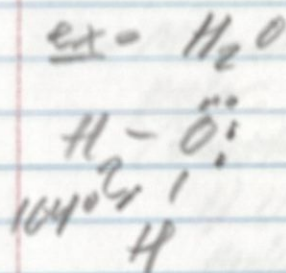 ex = H₂O
H - Ö:
104°
H